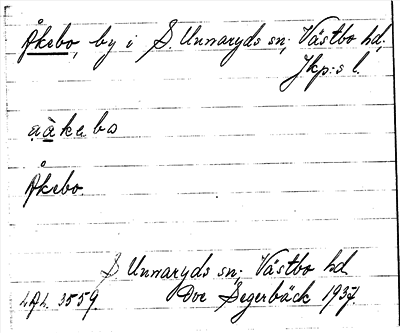 Åkebo, by i S. Unnaryds sn, Västbo hd,
Jkp:s l.
aàkebo
Åkebo
S Unnaryds sn, Västbo hd
LAL 3559. Ove Segerbäck 1937.